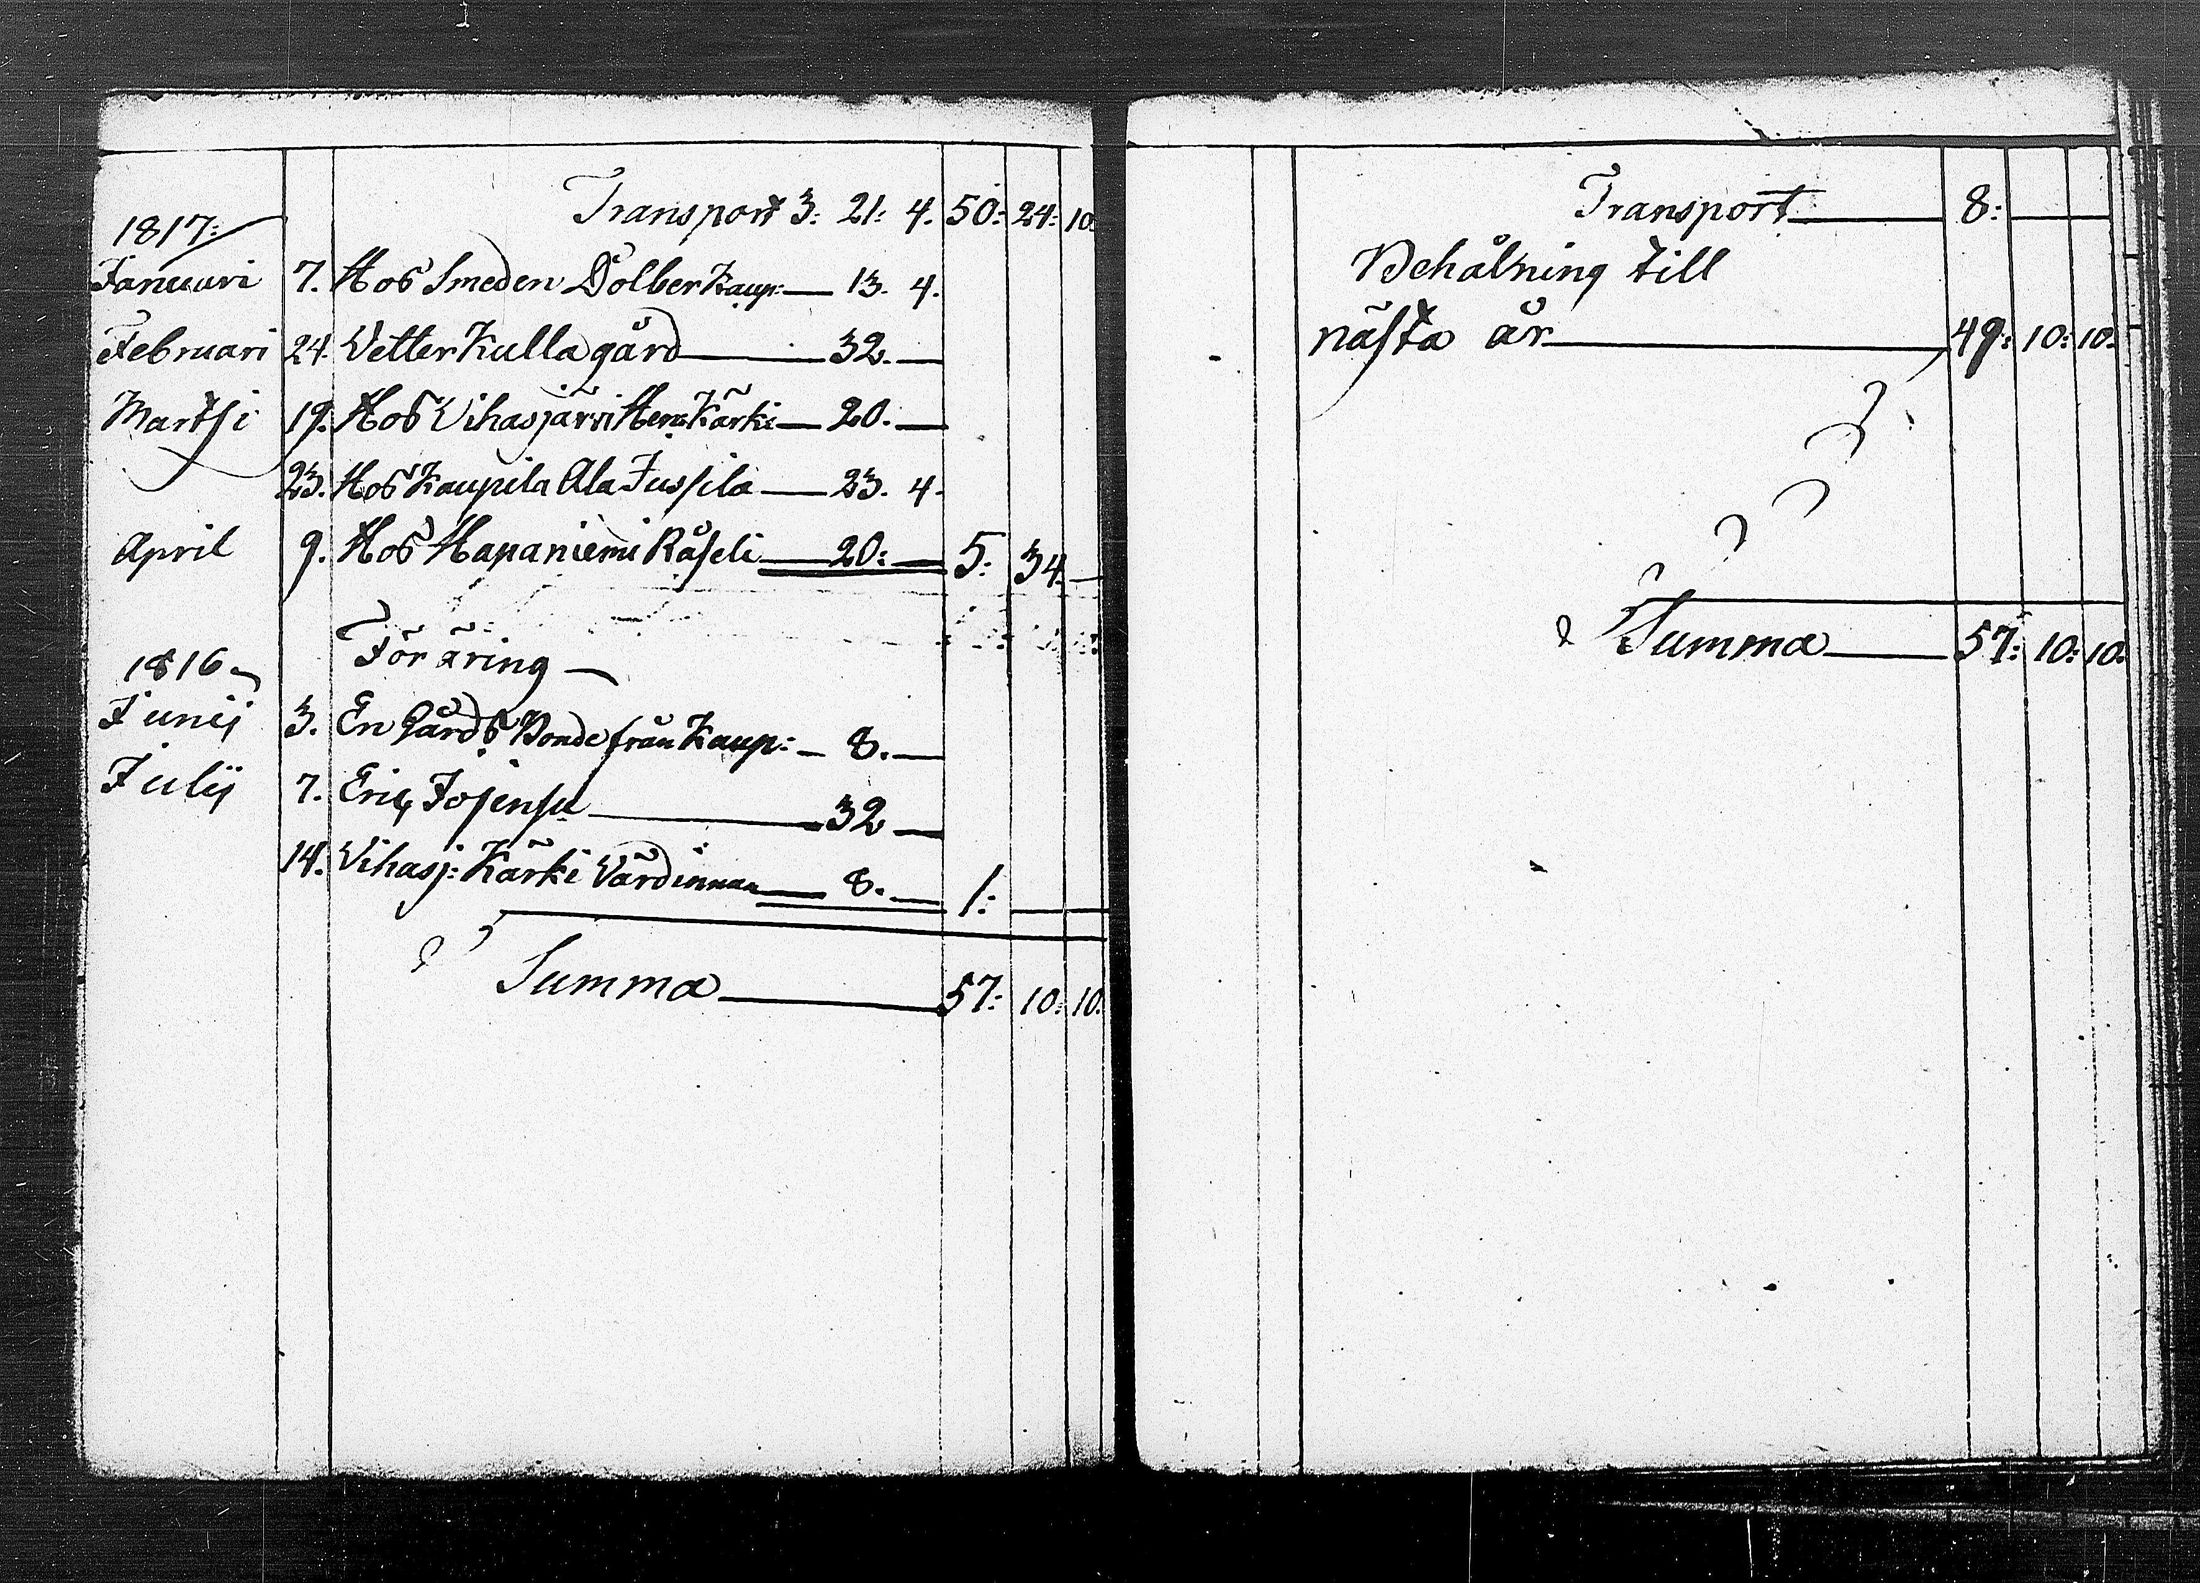 Transport 3: 21: 4. 50: 24: 10.
1817:
Januari 7. Hos Smeden Dolber Kaup: — 13. 4.
Februari 24. Vetterkulla gård — 32. —
Martsi 19. Hos Vihasjärvi Hens Kärki — 20. —
23. Hos Kaupila Ala Jussila — 23. 4.
April 9. Hos Hapaniemi Råseli — 20: — 5: 34. —
För äring —
1816
Junij 3. En Gårds Bonde från Kaup: — 8. —
Julij 7. Eric Josensu — 32 —
14. Vihasj: Kärki Värdinnan — 8. — 1: —
Summa — 57: 10: 10.
Transport — 8: —
Behålning till
nästa år — 49: 10: 10.
Summa — 57: 10: 10.